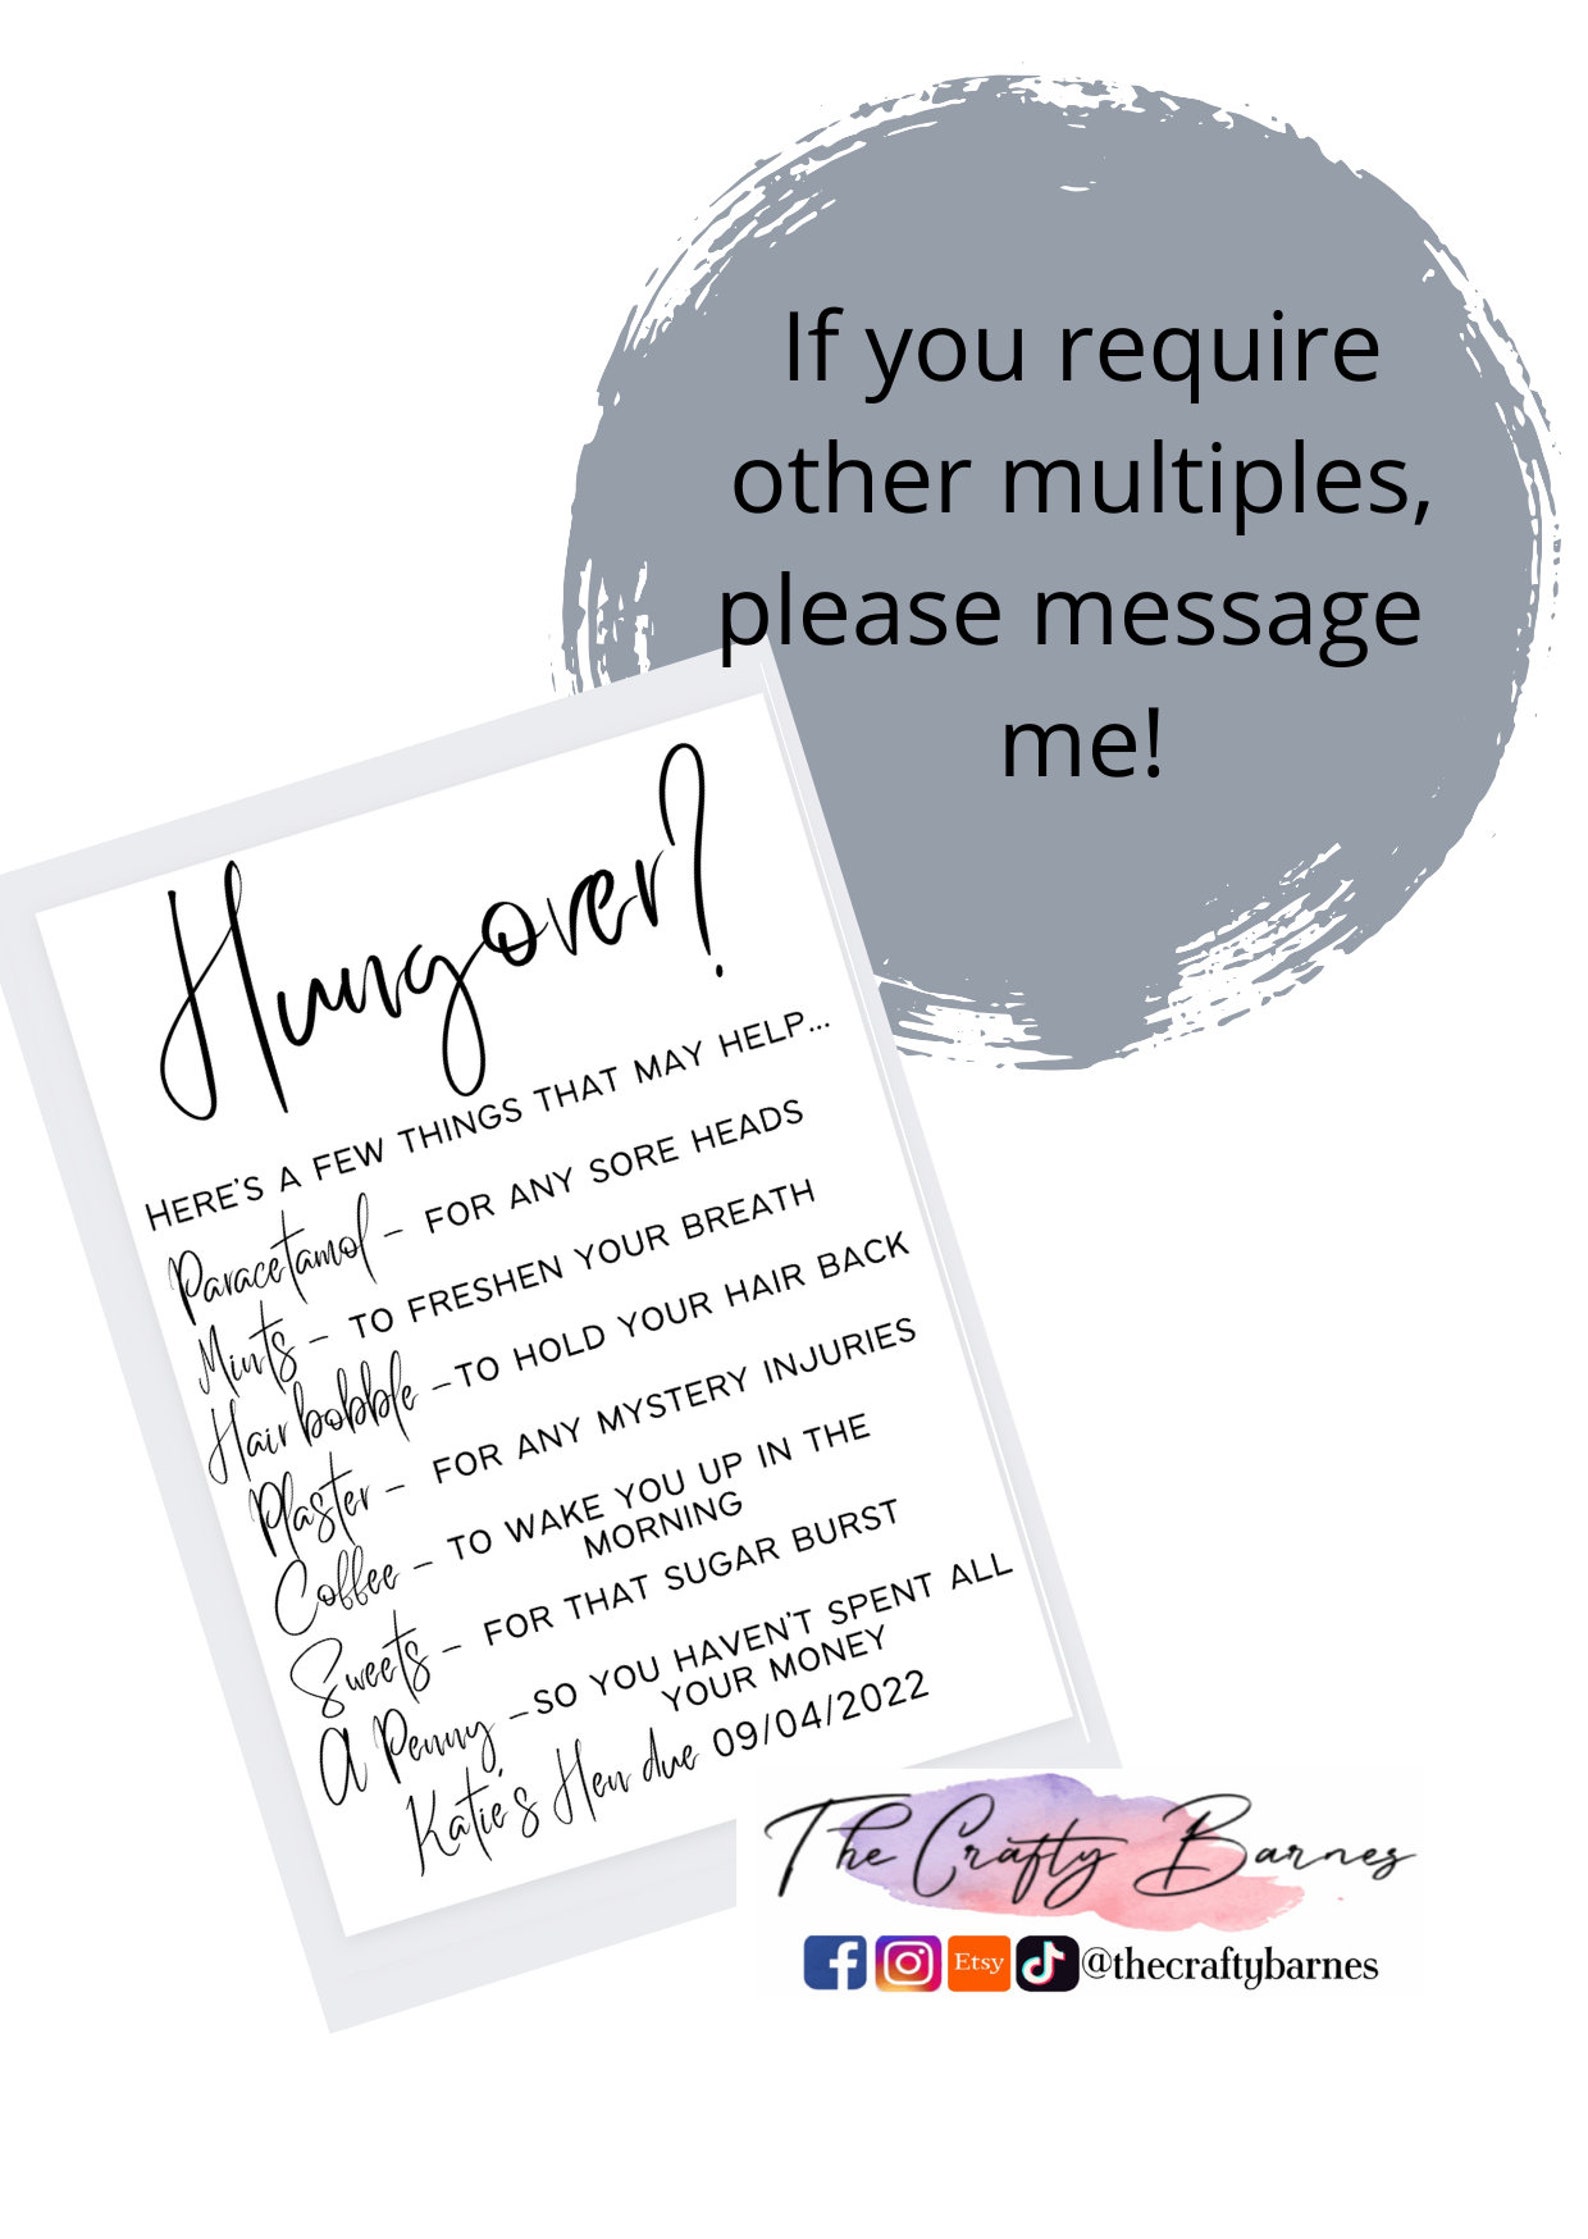 If you require
other multiples,
please message
me!
Hungover?
HERE'S A FEW THINGS THAT MAY HELP...
Paracetamol - FOR ANY SORE HEADS
Mints - TO FRESHEN YOUR BREATH
Hair bobble -TO HOLD YOUR HAIR BACK
Plaster - FOR ANY MYSTERY INJURIES
Coffee - TO WAKE YOU UP IN THE
MORNING
Sweets - FOR THAT SUGAR BURST
A Penny -SO YOU HAVEN'T SPENT ALL
YOUR MONEY
Katie's Hen due 09/04/2022
The Crafty Barnes
Etsy @thecraftybarnes